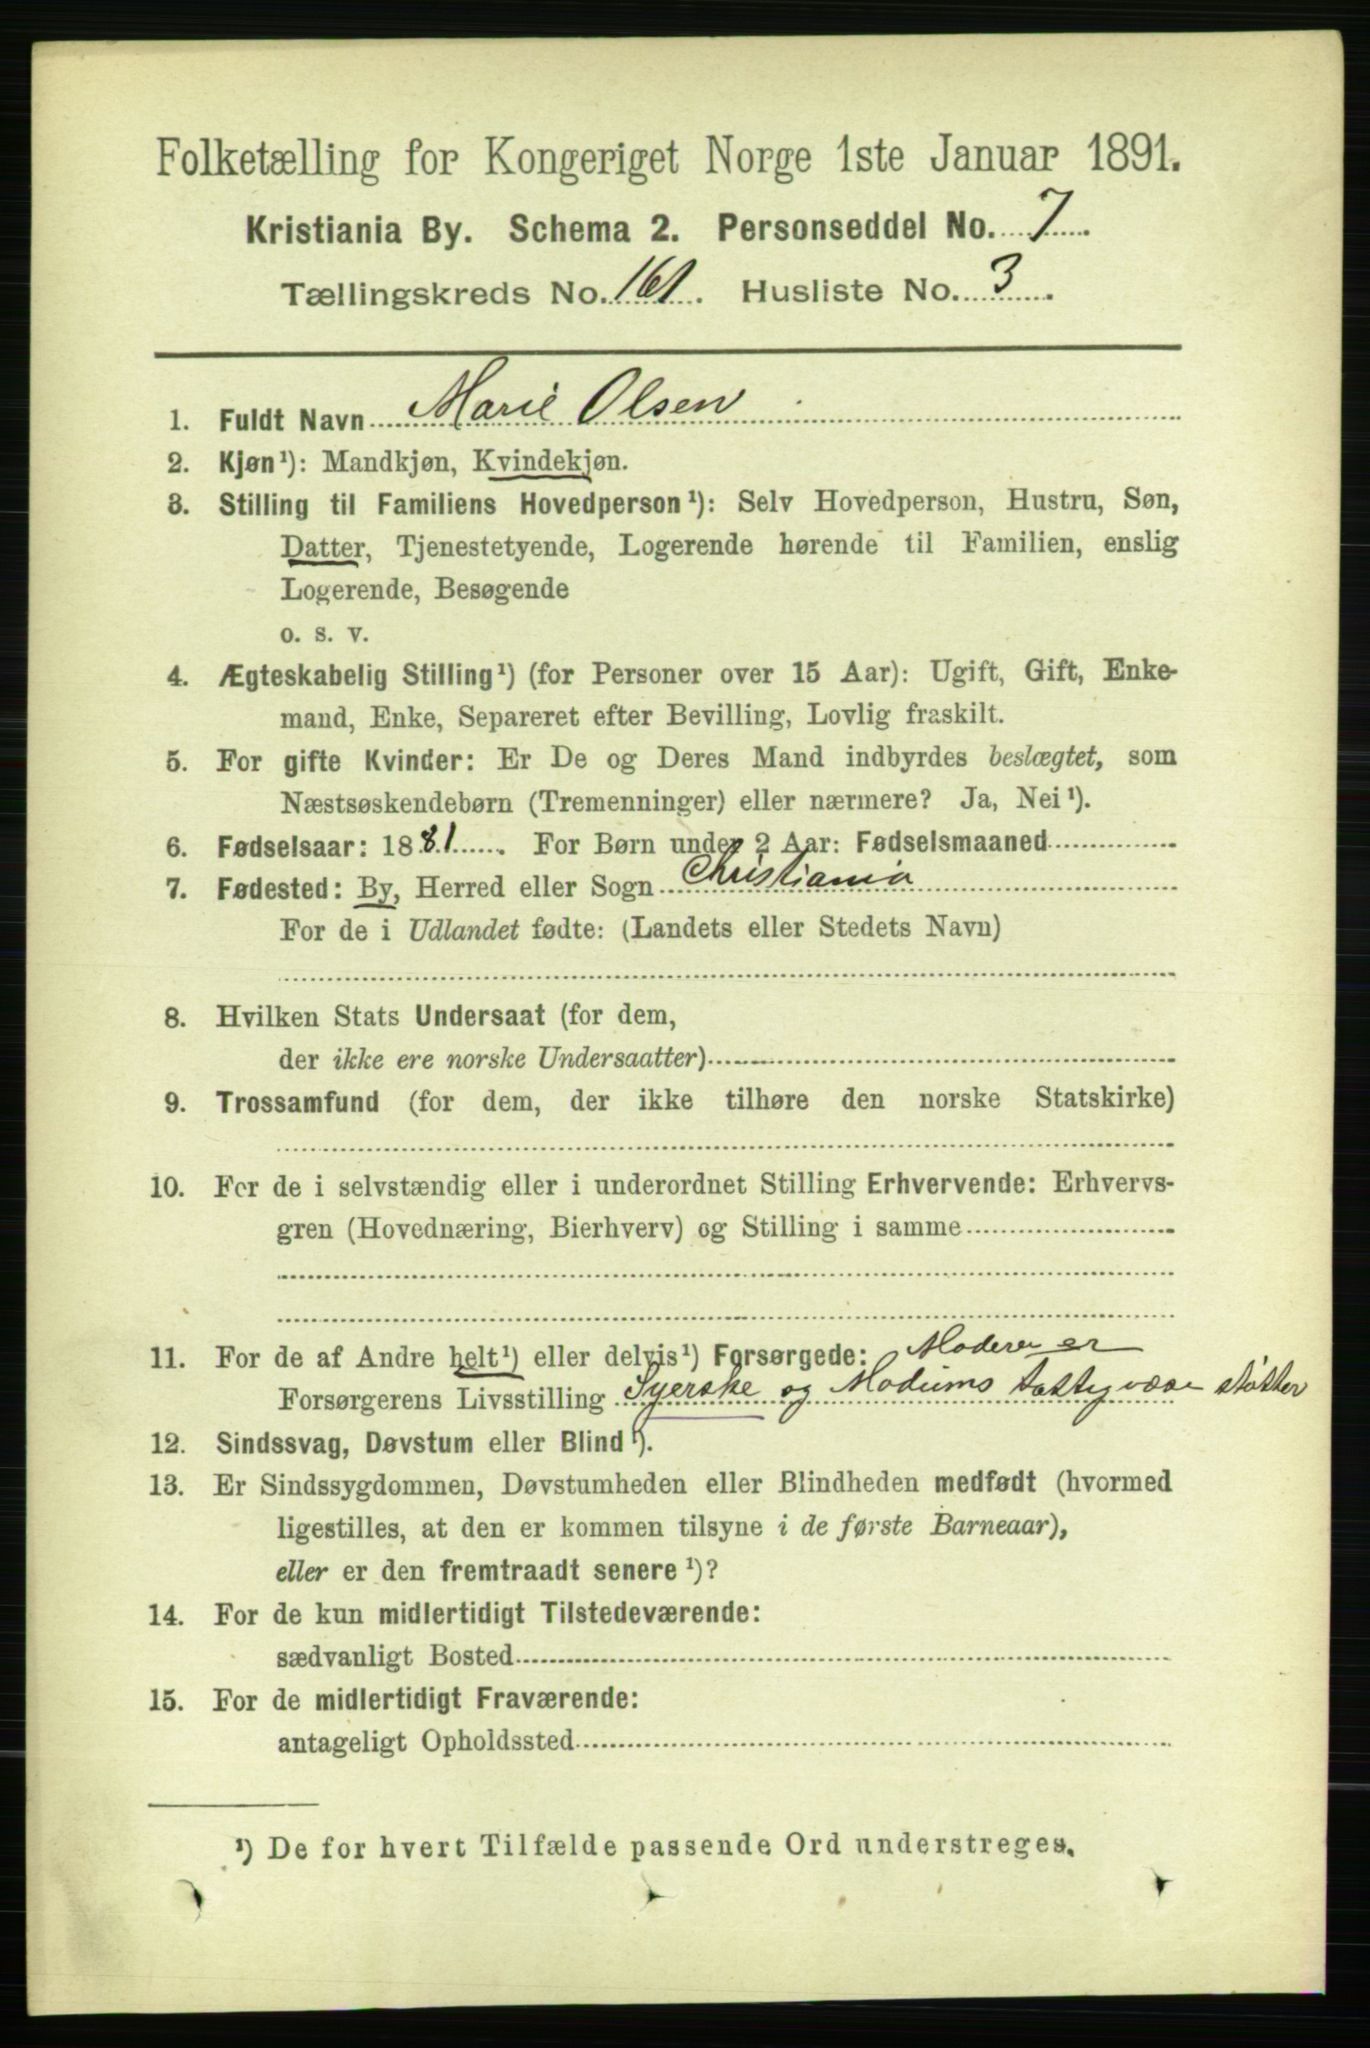 Folketælling for Kongeriget Norge 1ste Januar 1891.
Kristiania By. Schema 2. Personseddel No. 7.
Tællingskreds No. 161. Husliste No. 3.
1. Fuldt Navn Marie Olsen
2. Kjøn¹): Mandkjøn, Kvindekjøn.
3. Stilling til Familiens Hovedperson¹): Selv Hovedperson, Hustru, Søn,
Datter, Tjenestetyende, Logerende hørende til Familien, enslig
Logerende, Besøgende
o. s. v.
4. Ægteskabelig Stilling¹) (for Personer over 15 Aar): Ugift, Gift, Enke-
mand, Enke, Separeret efter Bevilling, Lovlig fraskilt.
5. For gifte Kvinder: Er De og Deres Mand indbyrdes beslægtet, som
Næstsøskendebørn (Tremenninger) eller nærmere? Ja, Nei¹).
6. Fødselsaar: 1881. For Børn under 2 Aar: Fødselsmaaned
7. Fødested: By, Herred eller Sogn Christiania
For de i Udlandet fødte: (Landets eller Stedets Navn)
8. Hvilken Stats Undersaat (for dem,
der ikke ere norske Undersaatter)
9. Trossamfund (for dem, der ikke tilhøre den norske Statskirke)
10. For de i selvstændig eller i underordnet Stilling Erhvervende: Erhvervs-
gren (Hovednæring, Bierhverv) og Stilling i samme
11. For de af Andre helt¹) eller delvis¹) Forsørgede: Moderen er
Forsørgerens Livsstilling Syerske og Modums
12. Sindssvag, Døvstum eller Blind¹).
13. Er Sindssygdommen, Døvstumheden eller Blindheden medfødt (hvormed
ligestilles, at den er kommen tilsyne i de første Barneaar),
eller er den fremtraadt senere¹)?
14. For de kun midlertidigt Tilstedeværende:
sædvanligt Bosted
15. For de midlertidigt Fraværende:
antageligt Opholdssted
¹) De for hvert Tilfælde passende Ord understreges.